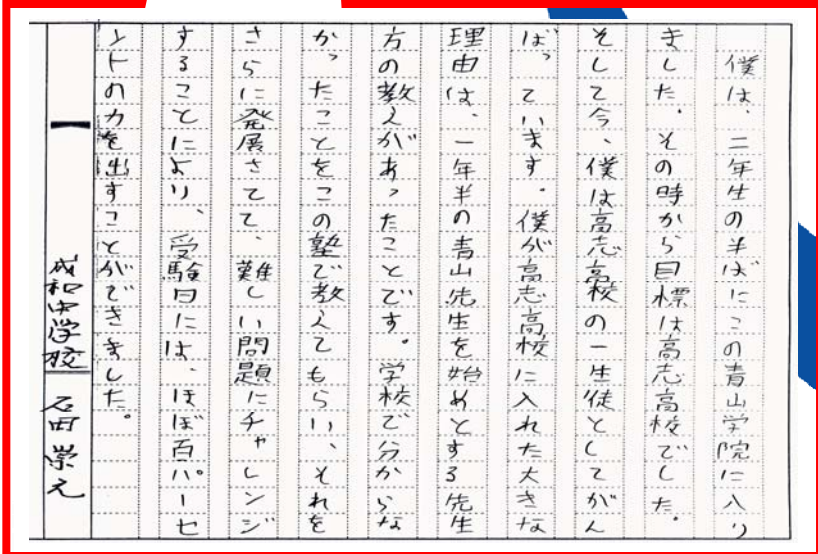 僕は、二年生の半ばにこの青山学院に入り
ました。その時から目標は高志高校でした。
そして今、僕は高志高校の一生徒としてがん
ばっています。僕が高志高校に入れた大きな
理由は、一年半の青山先生を始めとする先生
方の教えがあったことです。学校で分からな
かったことをこの塾で教えてもらい、それを
さらに発展させて、難しい問題にチャレンジ
することにより、受験日には、ほぼ百パーセ
ントの力を出すことができました。
成和中学校 石田